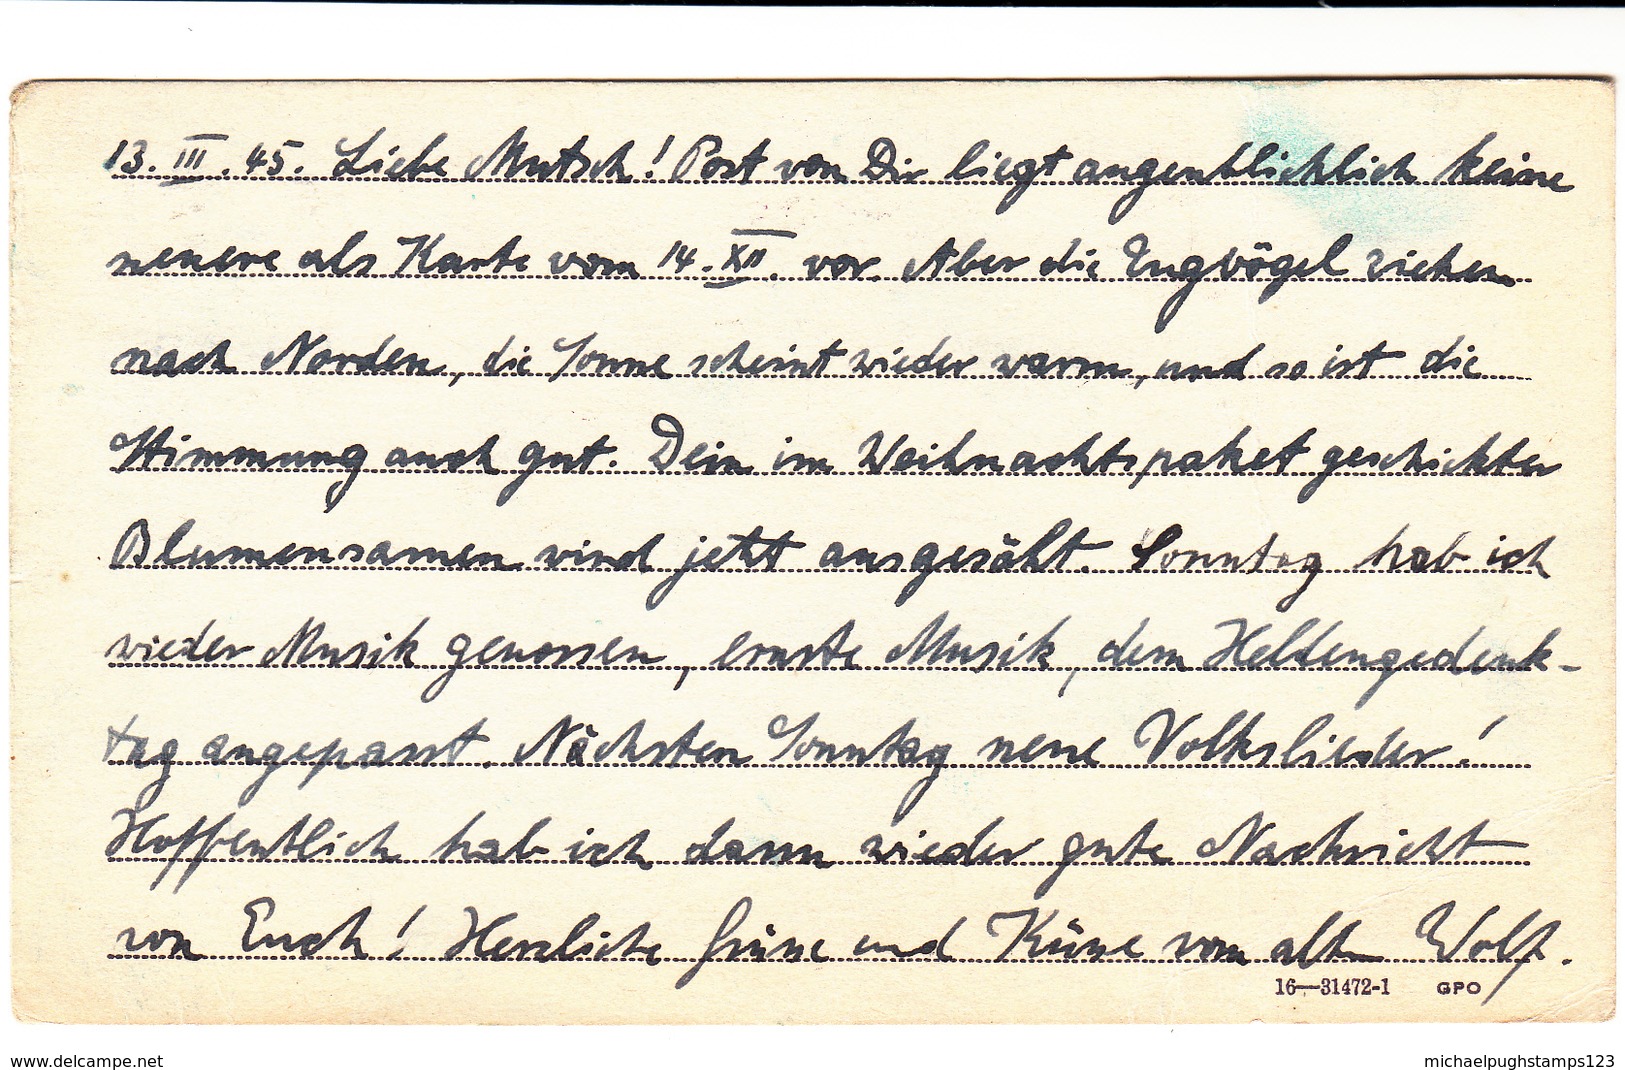 13. III. 45. Liebe Mutsch! Post von Dir liegt augenblicklich keine
neuere als Karte vom 14. XII. vor. Aber die Zugvögel ziehen
nach Norden, die Sonne scheint wieder warm, und so ist die
Stimmung auch gut. Dein im Weihnachtspaket geschickter
Blumensamen wird jetzt ausgesäht. Sonntag hab ich
wieder Musik genossen, ernste Musik, dem Heldengedenk-
tag angepasst. Nächsten Sonntag neue Volkslieder!
Hoffentlich hab ich dann wieder gute Nachricht
von Euch! Herzliche Grüsse und Küsse vom alten Wolf.
16—31472-1 GPO
www.delcampe.net
michaelpughstamps123